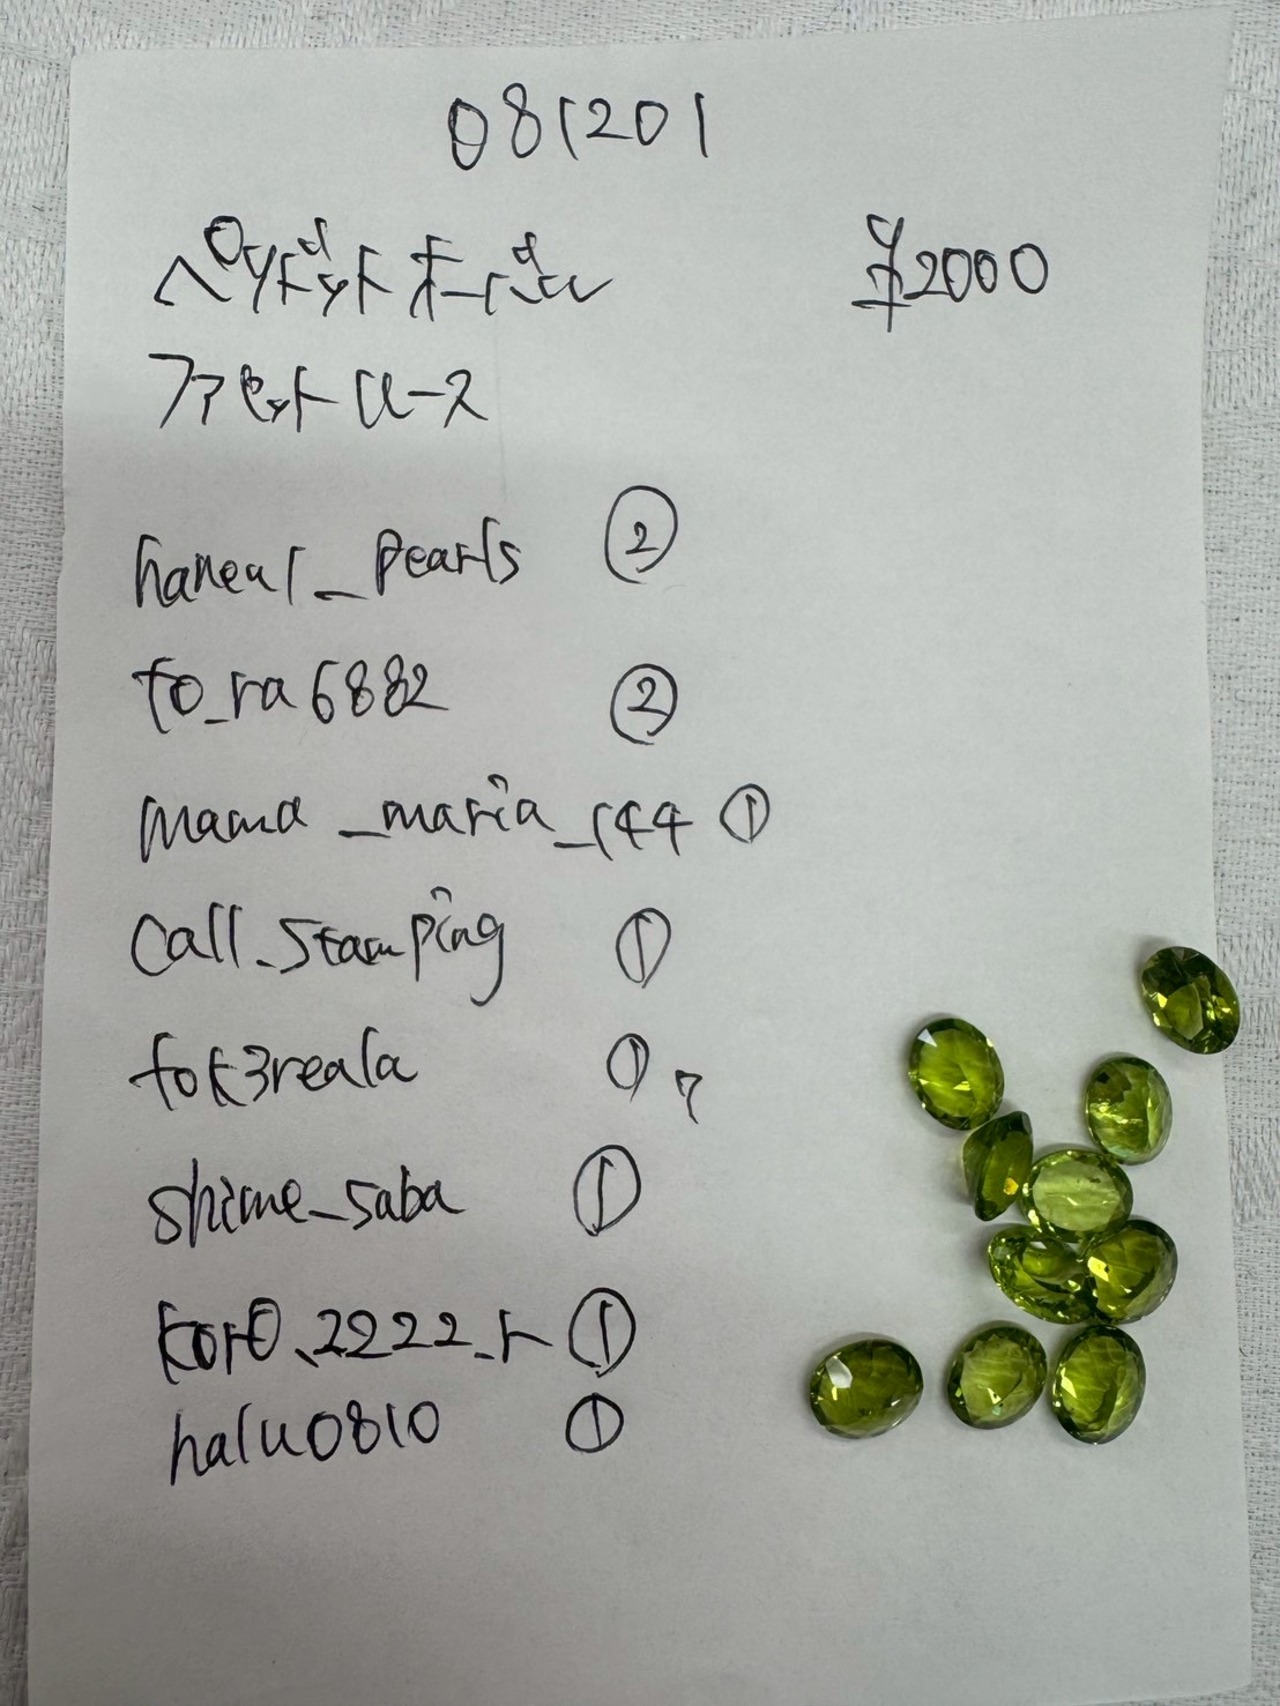 081201
ペリドット オーバル ¥2000
ファセットルース
haneul_pearls ②
to_ra6882 ②
mama_maria_144 ①
call.stamping ①
tok3reala ① 7
shime_saba ①
koro.2222_r ①
halu0810 ①